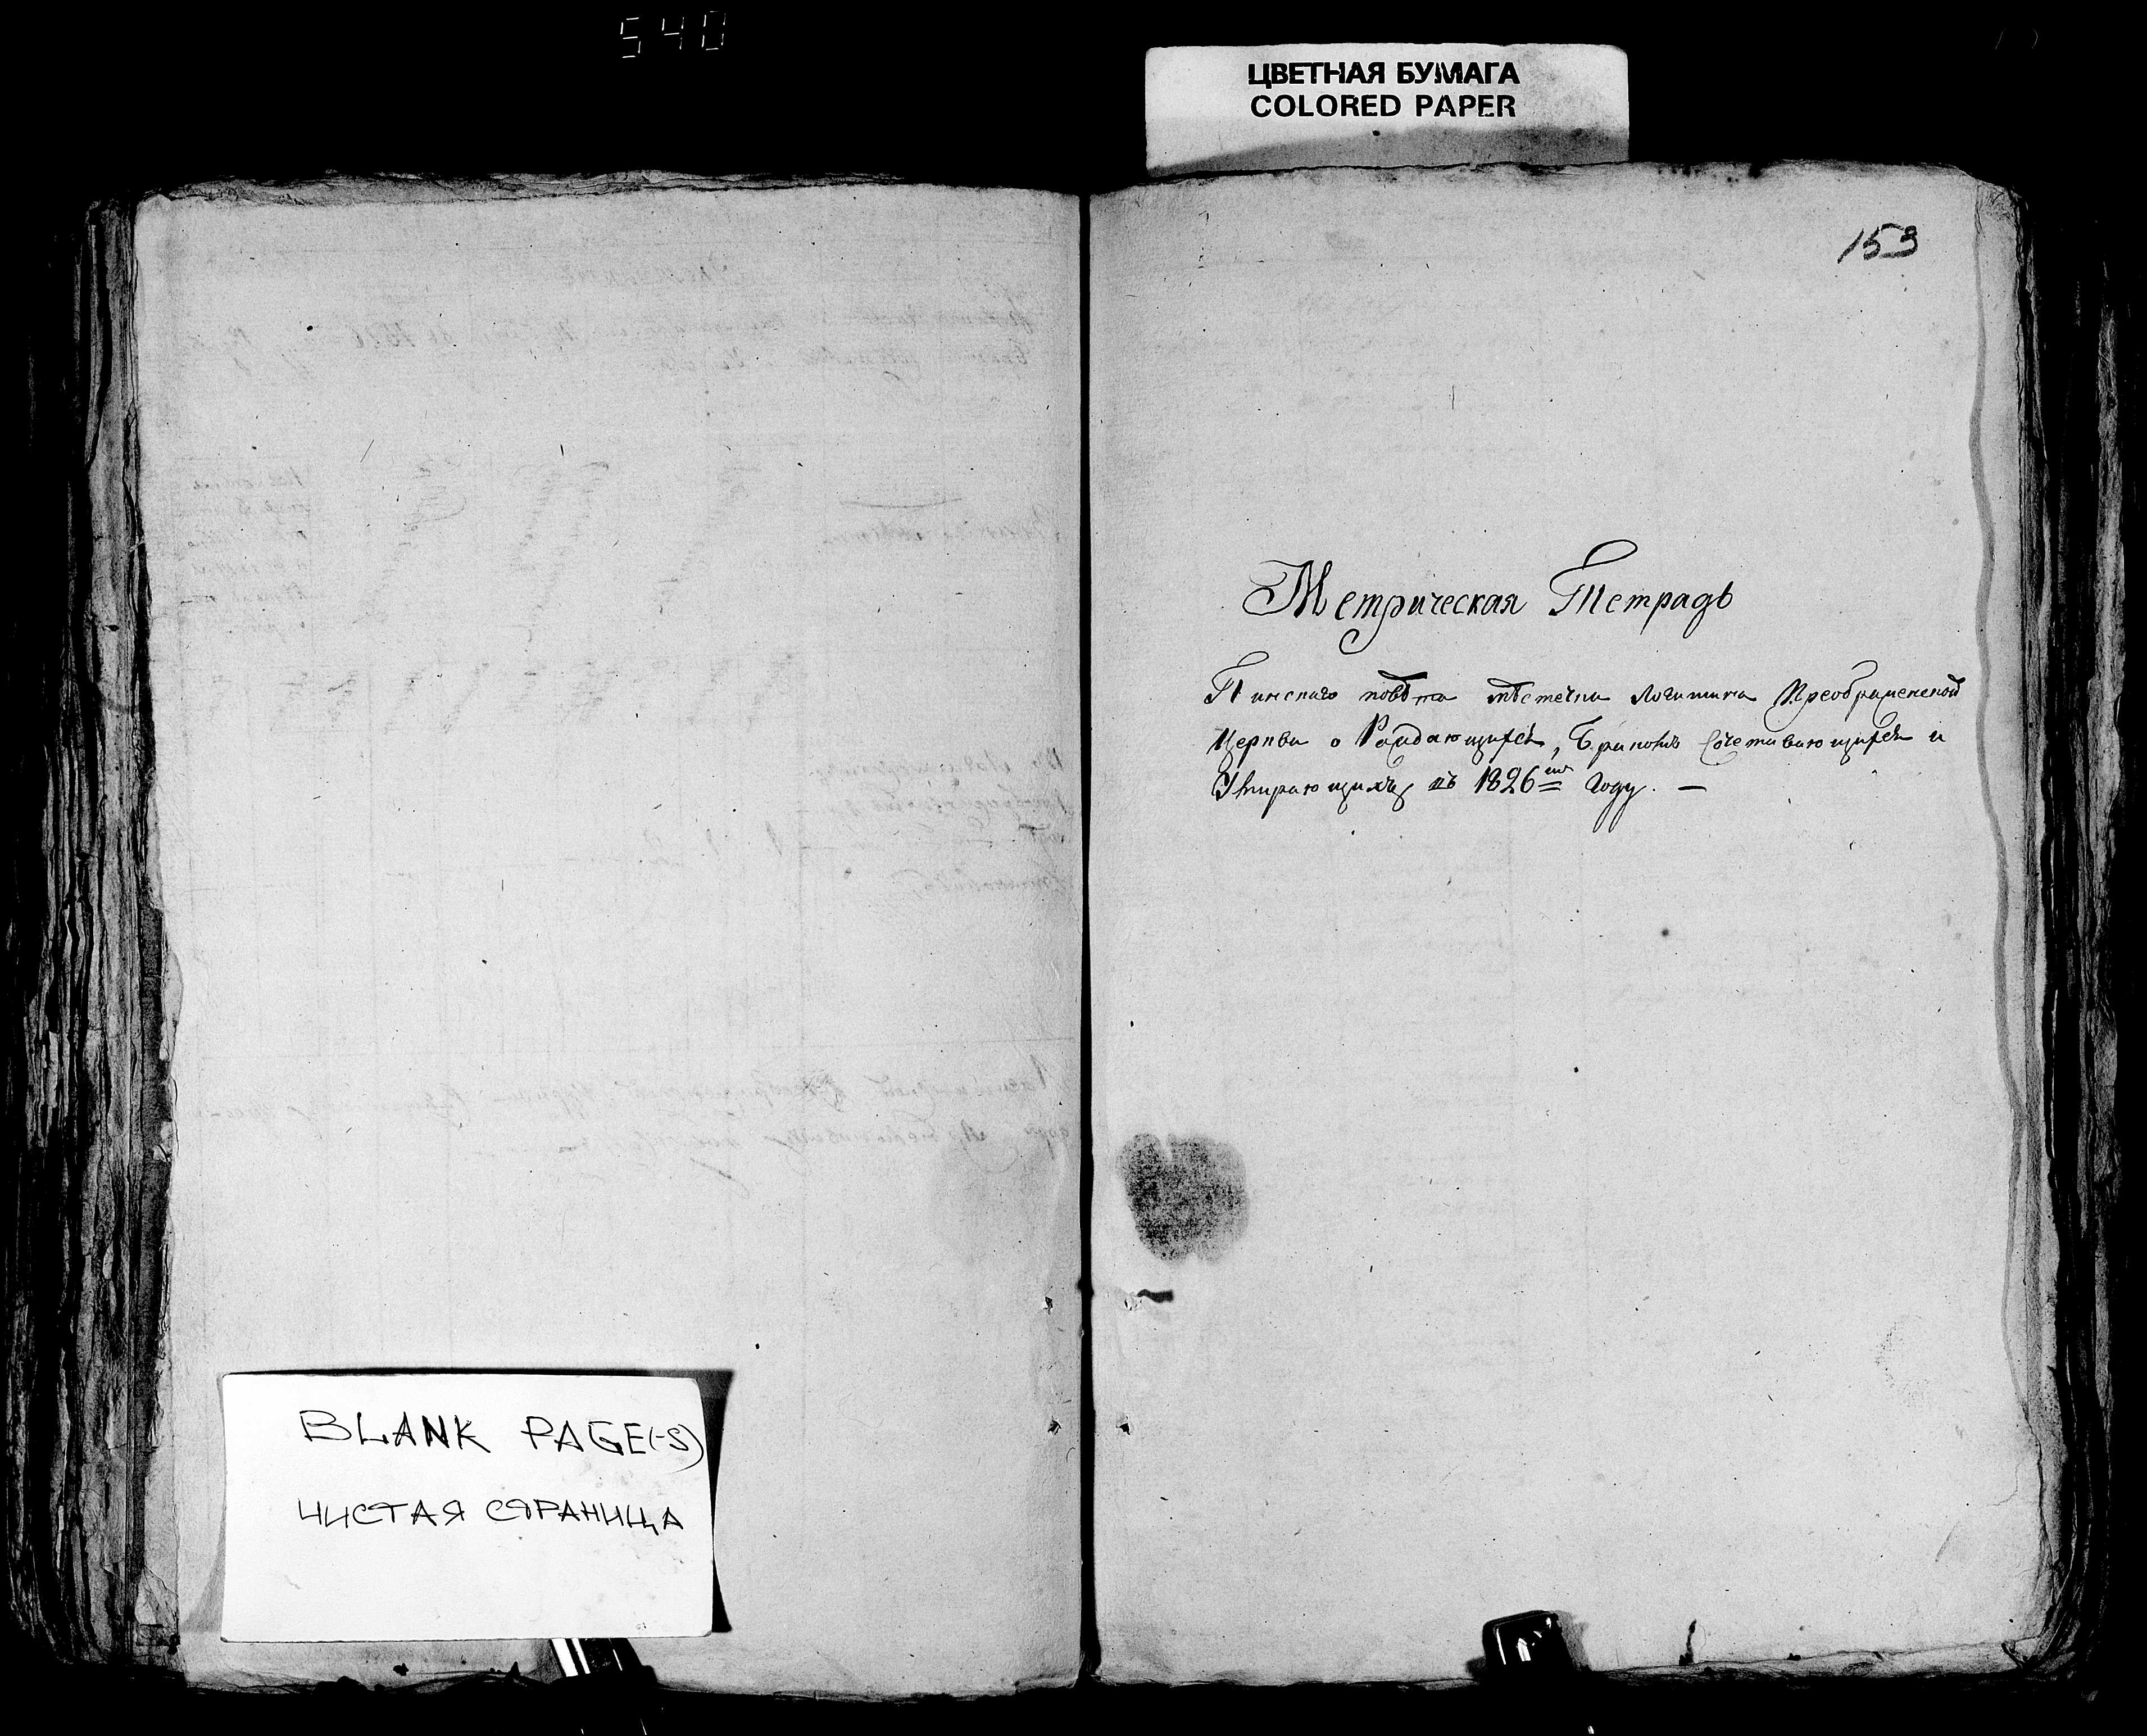 540
ЦВЕТНАЯ БУМАГА
COLORED PAPER
153
Метрическая Тетрадь
Пинскаго повѣта мѣстечка Логишина Преображенской
Церкви о Раждающихся, Бракомъ Сочетавающихся и
Умирающихъ въ 1826мъ Году. —
BLANK PAGE(-S)
ЧИСТАЯ СТРАНИЦА